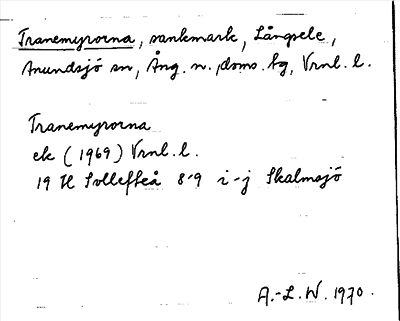 Tranemyrorna, sankmark, Långsele,
Anundsjö sn, Ång. n., doms. hg, Vrnl. l.
Tranemyrorna
ek (1969) Vrnl. l.
19 H Sollefteå 8-9 i-j Skalmsjö
A.-L. W. 1970.